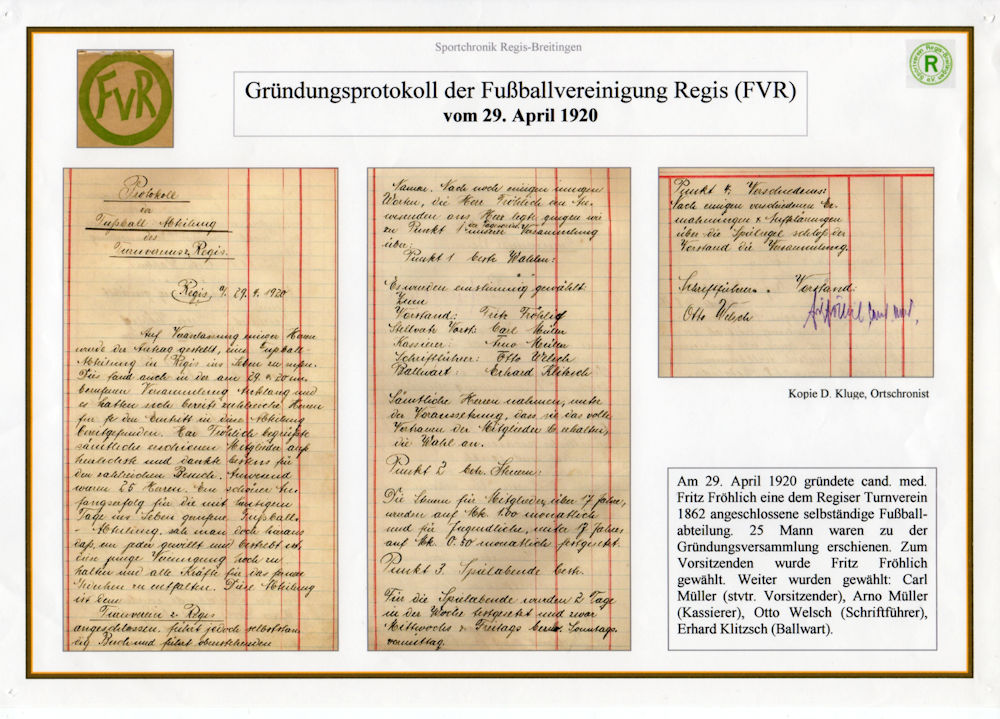 Sportchronik Regis-Breitingen
FVR
Gründungsprotokoll der Fußballvereinigung Regis (FVR)
vom 29. April 1920
Sportverein Regis-Breitingen e.V.
R
Protokoll
der
Fußball Abteilung
des
Turnverein z. Regis.
Regis, 29.4.1920
Auf Veranlassung einiger Herren
wurde der Antrag gestellt, eine Fußball-
Abteilung in Regis ins Leben zu rufen.
Dies fand auch in der am 29.4.20 ein-
berufenen Versammlung Anklang und
es hatten sich bereits zahlreiche Herren
für den Eintritt in diese Abteilung
bereitgefunden. Herr Fröhlich begrüßte
sämtliche erschienen Mitglieder auf
herzlichste und dankte bestens für
den zahlreichen Besuch. Anwesend
waren 25 Herren. Ein schöner An-
fangserfolg für die mit heutigem
Tage ins Leben gerufene Fußball-
Abteilung, sah man doch daraus
daß ein jeder gewillt und bestrebt ist,
eine junge Vereinigung hoch zu
halten und alle Kräfte für das
zu entfalten. Diese Abteilung
ist dem
Turnverein z. Regis
angeschlossen, führt jedoch selbststän-
dig Buch und führt obenstehenden
Namen. Nach noch einigen innigen
Worten, die Herr Fröhlich den An-
wesenden ans Herz legte gingen wir
zu Punkt 1 der Tagesordn. unserer Versammlung
über:
Punkt 1 betr. Wahlen:
Es wurden einstimmig gewählt:
Zum
Vorstand: Fritz Fröhlich
Stellvertr. Vorst: Carl Müller
Kassierer: Arno Müller
Schriftführer: Otto Welsch
Ballwart: Erhard Klitzsch
Sämtliche Herren nahmen, unter
der Voraussetzung, dass sie das volle
Vertrauen der Mitglieder behalten,
die Wahl an.
Punkt 2 betr. Steuern:
Die Steuern für Mitglieder über 17 Jahre,
wurden auf Mk. 1.00 monatlich
und für Jugendliche, unter 17 Jahre,
auf Mk. 0.50 monatlich festgesetzt.
Punkt 3. Spielabende betr.
Für die Spielabende wurden 2 Tage
in der Woche festgesetzt und zwar
Mittwochs & Freitags bezw. Sonntags-
vormittag.
Punkt 4. Verschiedenes:
Nach einigen verschiedenen Er-
mahnungen & Aufklärungen
über die Spielregel schloß der
Vorstand die Versammlung.
Schriftführer. Vorstand:
Otto Welsch
Kopie D. Kluge, Ortschronist
Am 29. April 1920 gründete cand. med.
Fritz Fröhlich eine dem Regiser Turnverein
1862 angeschlossene selbständige Fußball-
abteilung. 25 Mann waren zu der
Gründungsversammlung erschienen. Zum
Vorsitzenden wurde Fritz Fröhlich
gewählt. Weiter wurden gewählt: Carl
Müller (stvtr. Vorsitzender), Arno Müller
(Kassierer), Otto Welsch (Schriftführer),
Erhard Klitzsch (Ballwart).